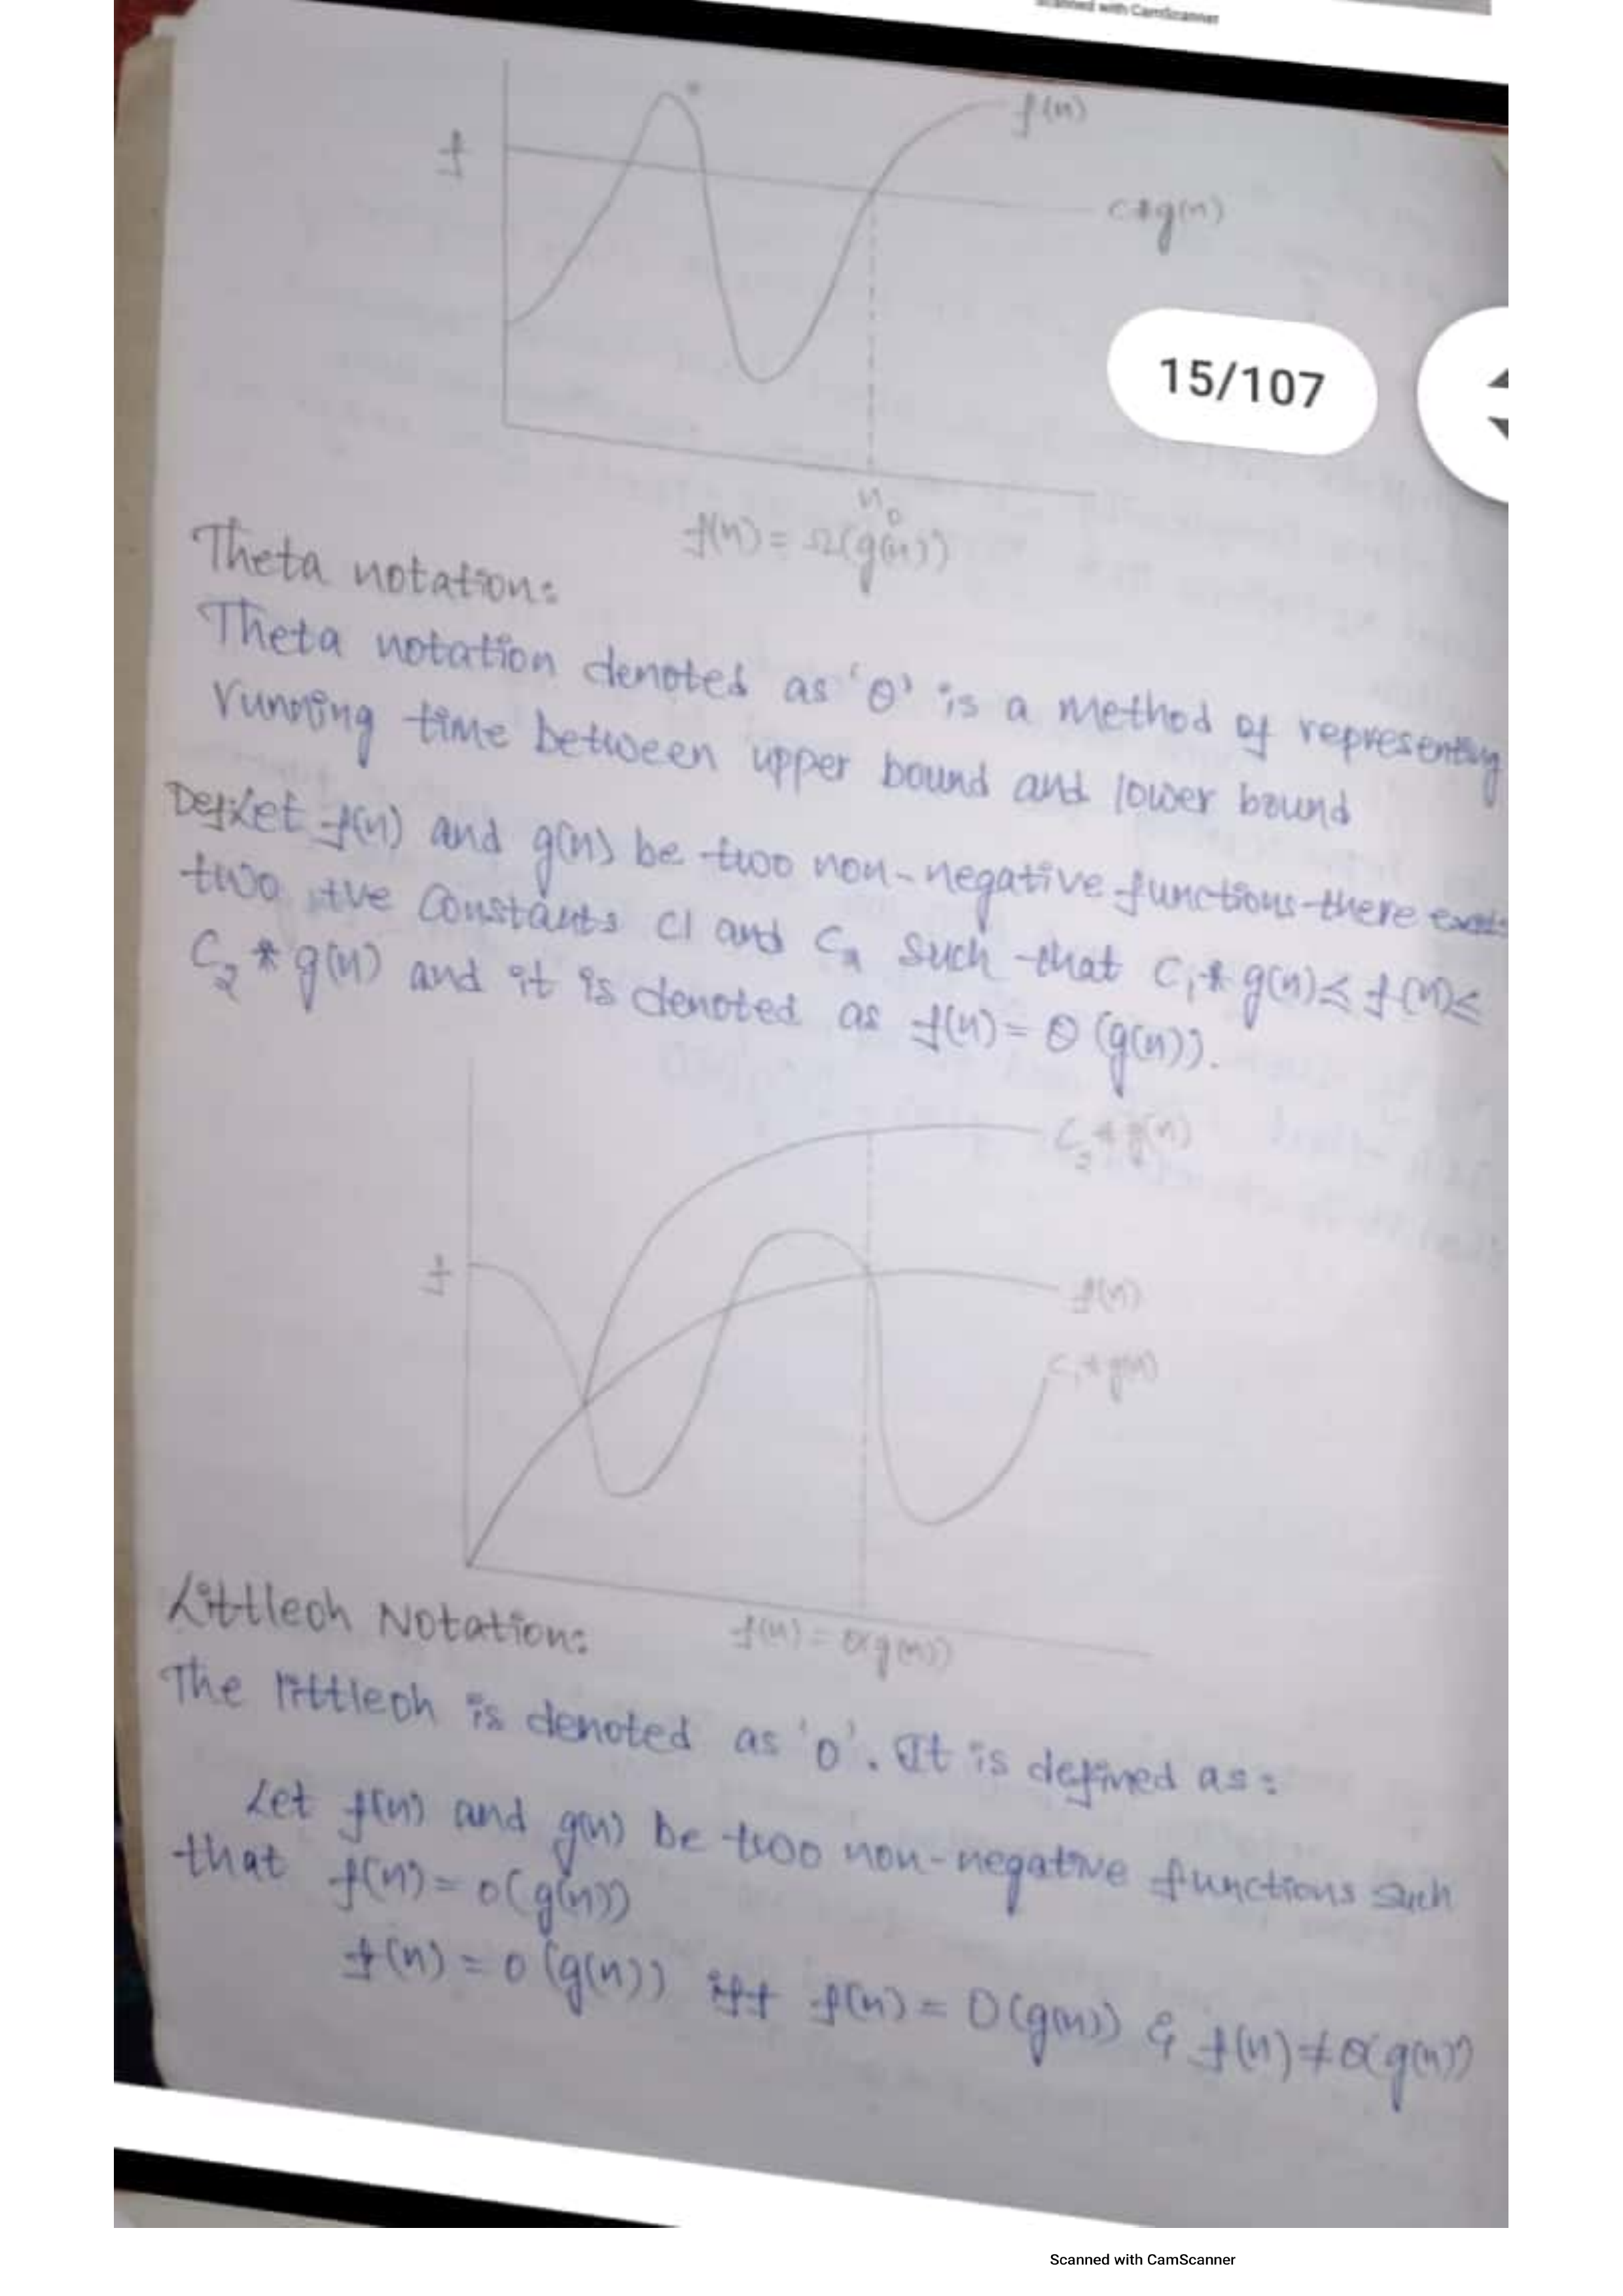 Scanned with CamScanner
f(n)
f
c*g(n)
15/107
n0
f(n) = Ω(g(n))
Theta notation:
Theta notation denoted as 'θ' is a method of representing
running time between upper bound and lower bound
Def: Let f(n) and g(n) be two non-negative functions there exists
two +ve Constants C1 and C2 such that C1 * g(n) ≤ f(n) ≤
C2 * g(n) and it is denoted as f(n) = θ (g(n)).
C2 * g(n)
f
f(n)
C1 * g(n)
f(n) = θ(g(n))
Littleoh Notation:
The littleoh is denoted as 'o'. It is defined as:
Let f(n) and g(n) be two non-negative functions such
that f(n) = o(g(n))
f(n) = o (g(n)) iff f(n) = O(g(n)) & f(n) ≠ θ(g(n))
Scanned with CamScanner